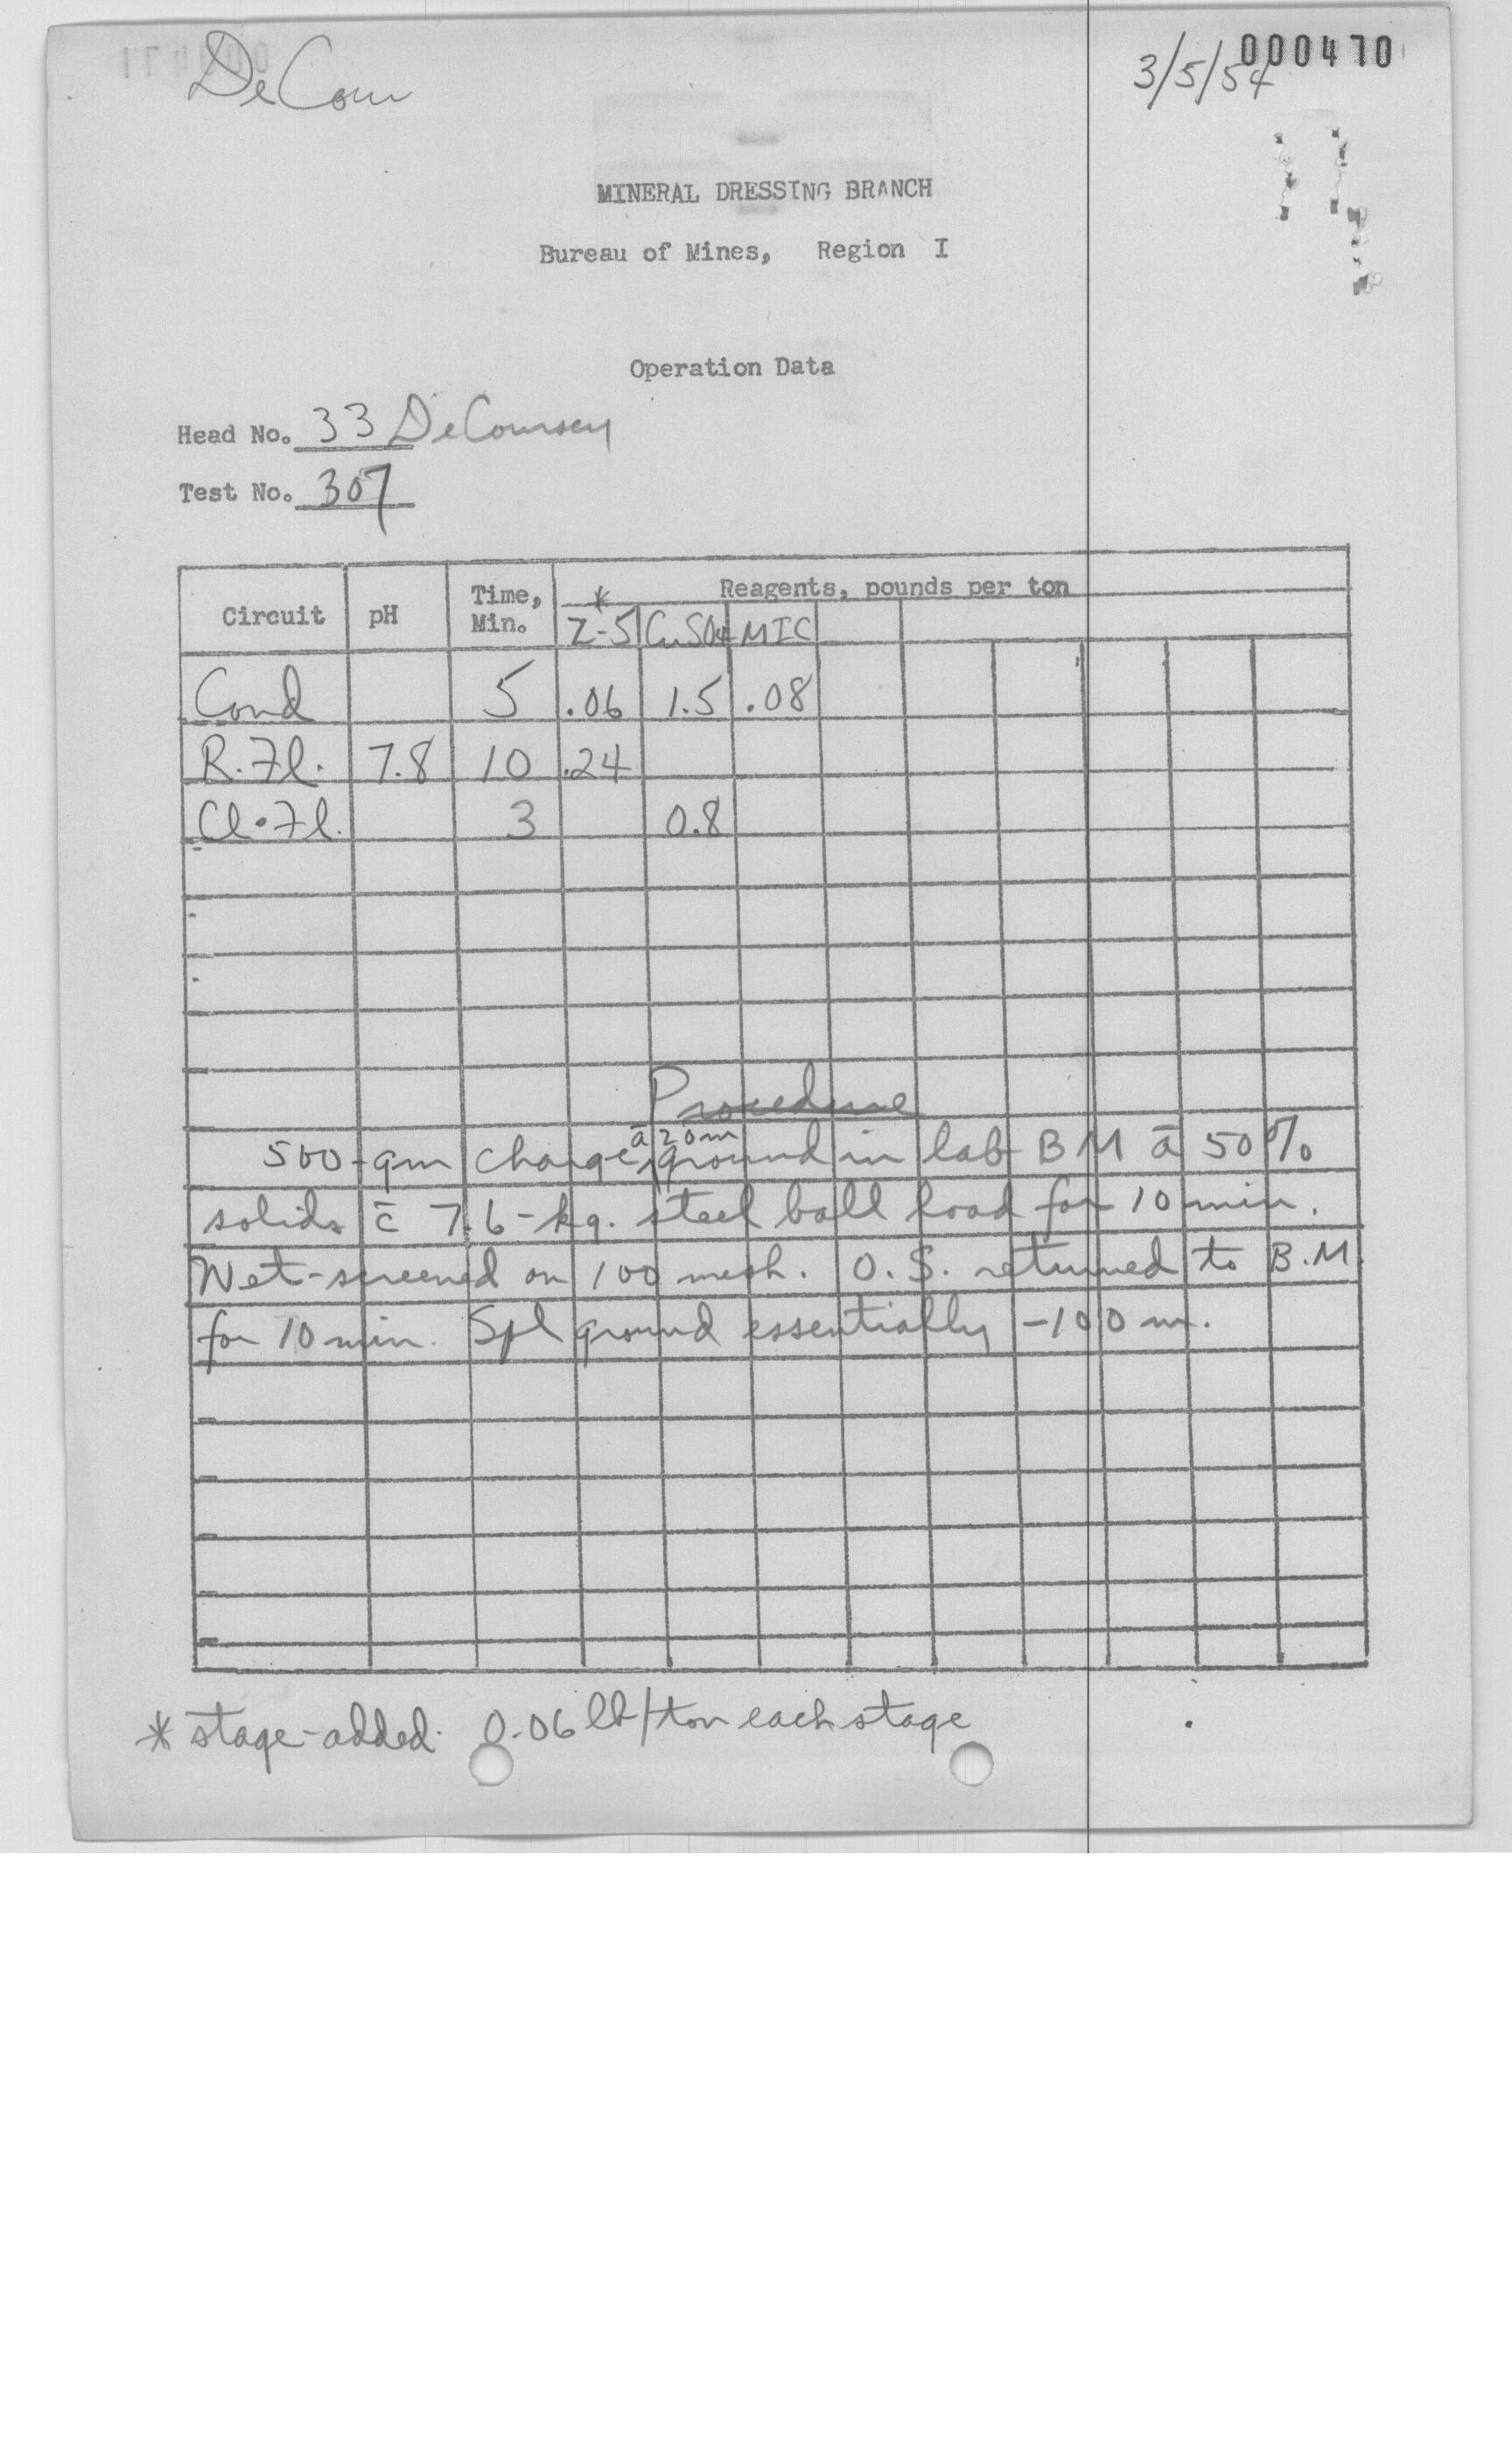 DeCour
000470
3/5/54
MINERAL DRESSING BRANCH
Bureau of Mines, Region I
Operation Data
Head No. 33 DeCoursey
Test No. 307
Circuit pH Time, Min. * Reagents, pounds per ton
Z-5 CuSO4 MIC
Cond 5 .06 1.5 .08
R.Fl. 7.8 10 .24
Cl.Fl. 3 0.8
Procedure
500-gm charge, ā 20m ground in lab BM ā 50%
solids c̄ 7.6-kg. steel ball load for 10 min.
Wet-screened on 100 mesh. O.S. returned to B.M
for 10 min. Spl ground essentially -100 m.
* stage-added. 0.06 lb/ton each stage